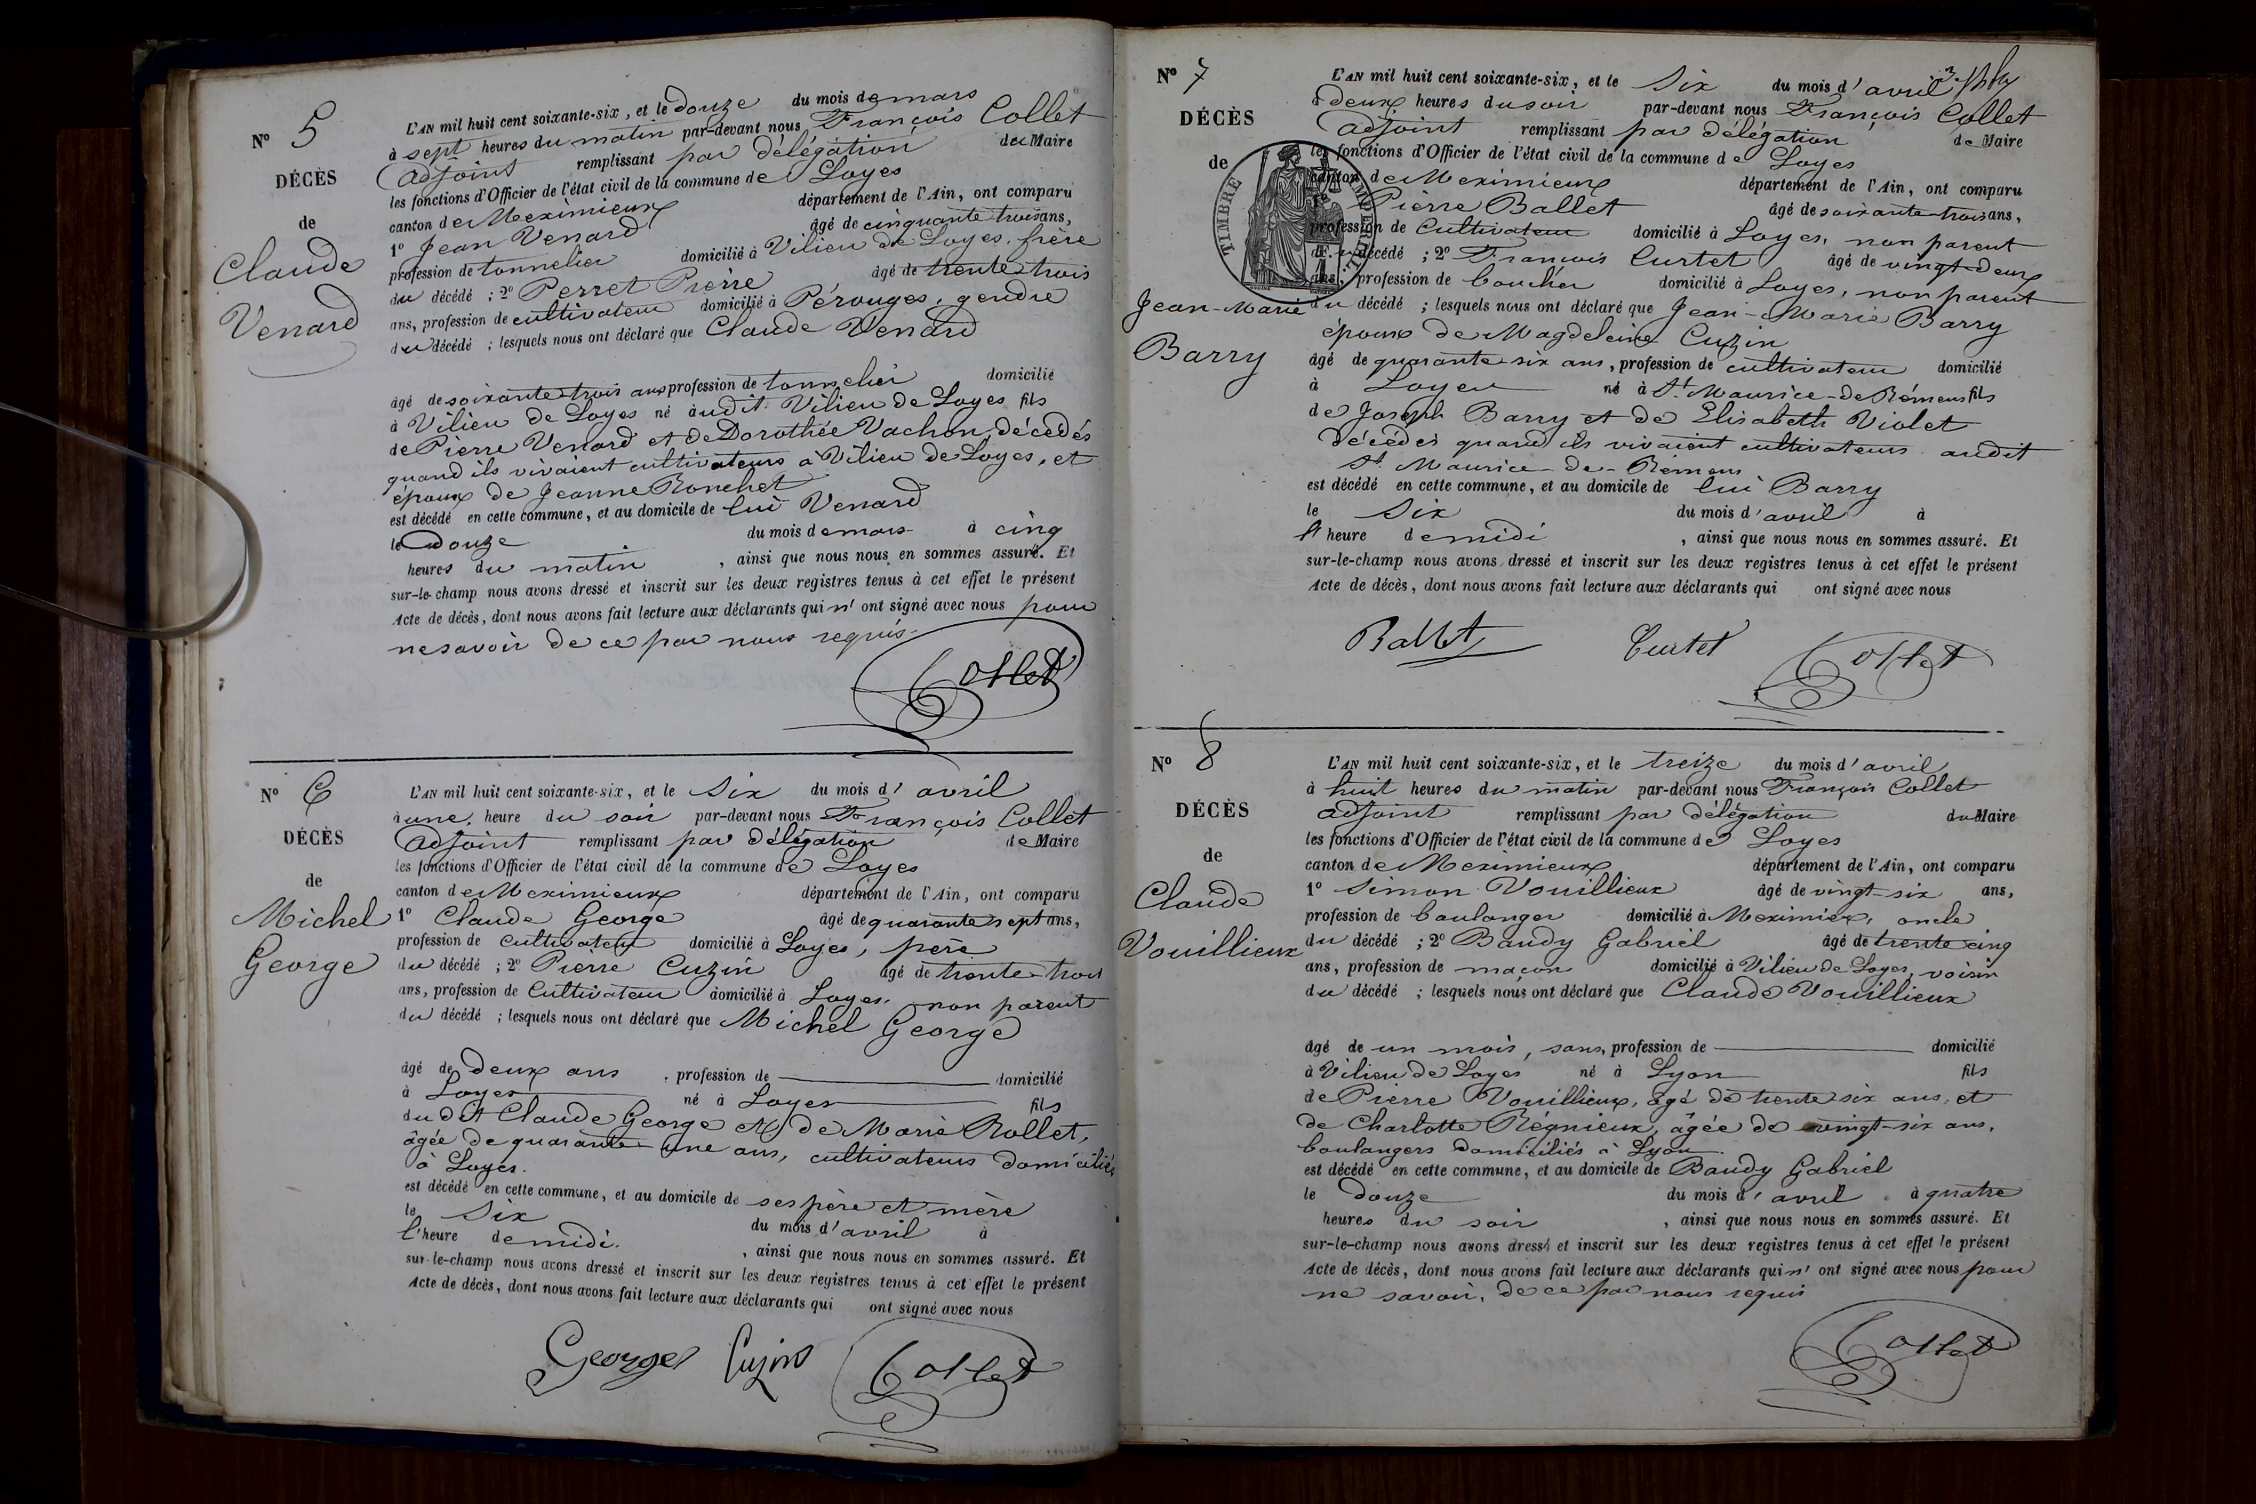 N° 5
DÉCÈS
de
Claude
Venard
L'AN mil huit cent soixante-six, et le douze du mois de mars
à sept heures du matin par-devant nous François Collet
adjoint remplissant par délégation de Maire
les fonctions d'Officier de l'état civil de la commune de Loyes
canton de Meximieux département de l'Ain, ont comparu
1° Jean Venard âgé de cinquante trois ans,
profession de tonnelier domicilié à Vilieu de Loyes, frère
du décédé ; 2° Perret Pierre âgé de trente trois
ans, profession de cultivateur domicilié à Pérouges, gendre
du décédé ; lesquels nous ont déclaré que Claude Venard
âgé de soixante trois ans profession de tonnelier domicilié
à Vilieu de Loyes né audit Vilieu de Loyes fils
de Pierre Venard et de Dorothée Vachon, décédés
quand ils vivaient cultivateurs à Vilieu de Loyes, et
époux de Jeanne Ronchet
est décédé en cette commune, et au domicile de lui Venard
le douze du mois de mars à cinq
heures du matin , ainsi que nous nous en sommes assuré. Et
sur-le-champ nous avons dressé et inscrit sur les deux registres tenus à cet effet le présent
Acte de décès, dont nous avons fait lecture aux déclarants qui n' ont signé avec nous pour
ne savoir de ce par nous requis.
Collet
N° 6
DÉCÈS
de
Michel
George
L'AN mil huit cent soixante-six, et le six du mois d' avril
à une heure du soir par-devant nous François Collet
adjoint remplissant par délégation de Maire
les fonctions d'Officier de l'état civil de la commune de Loyes
canton de Meximieux département de l'Ain, ont comparu
1° Claude George âgé de quarante sept ans,
profession de cultivateur domicilié à Loyes, père
du décédé ; 2° Pierre Cuzin âgé de trente trois
ans, profession de Cultivateur domicilié à Loyes, non parent
du décédé ; lesquels nous ont déclaré que Michel George
âgé de deux ans , profession de domicilié
à Loyes né à Loyes fils
du dit Claude George et de Marie Rollet,
âgée de quarante une ans, cultivateurs domiciliés
à Loyes.
est décédé en cette commune, et au domicile de ses père et mère
le six du mois d' avril à
l'heure de midi. , ainsi que nous nous en sommes assuré. Et
sur-le-champ nous avons dressé et inscrit sur les deux registres tenus à cet effet le présent
Acte de décès, dont nous avons fait lecture aux déclarants qui ont signé avec nous
George Cuzin Collet
N° 7
DÉCÈS
de
Jean-Marie
Barry
TIMBRE IMPERIAL
L'AN mil huit cent soixante-six, et le six du mois d' avril
à deux heures du soir par-devant nous François Collet
adjoint remplissant par délégation de Maire
les fonctions d'Officier de l'état civil de la commune de Loyes
canton de Meximieux département de l'Ain, ont comparu
1° Pierre Ballet âgé de soixante trois ans,
profession de Cultivateur domicilié à Loyes, non parent
du décédé ; 2° François Curtet âgé de vingt-deux
ans, profession de boucher domicilié à Loyes, non parent
du décédé ; lesquels nous ont déclaré que Jean-Marie Barry
époux de Magdeleine Cuzin
âgé de quarante six ans, profession de cultivateur domicilié
à Loyes né à St. Maurice-de Rémens fils
de Joseph Barry et de Elisabeth Violet
décédés quand ils vivaient cultivateurs audit
St. Maurice-de-Remens
est décédé en cette commune, et au domicile de lui Barry
le six du mois d' avril à
l'heure de midi , ainsi que nous nous en sommes assuré. Et
sur-le-champ nous avons dressé et inscrit sur les deux registres tenus à cet effet le présent
Acte de décès, dont nous avons fait lecture aux déclarants qui ont signé avec nous
Ballet Curtet Collet
N° 8
DÉCÈS
de
Claude
Vouillieux
L'AN mil huit cent soixante-six, et le treize du mois d' avril
à huit heures du matin par-devant nous François Collet
adjoint remplissant par délégation du Maire
les fonctions d'Officier de l'état civil de la commune de Loyes
canton de Meximieux département de l'Ain, ont comparu
1° Simon Vouillieux âgé de vingt-six ans,
profession de boulanger domicilié à Meximiex, oncle
du décédé ; 2° Baudy Gabriel âgé de trente cinq
ans, profession de maçon domicilié à Vilieu de Loyes, voisin
du décédé ; lesquels nous ont déclaré que Claude Vouillieux
âgé de un mois, sans, profession de domicilié
à Vilieu de Loyes né à Lyon fils
de Pierre Vouillieux, âgé de trente six ans, et
de Charlotte Régnieux, âgée de vingt-six ans,
boulangers domiciliés à Lyon.
est décédé en cette commune, et au domicile de Baudy Gabriel
le douze du mois d' avril à quatre
heures du soir , ainsi que nous nous en sommes assuré. Et
sur-le-champ nous avons dressé et inscrit sur les deux registres tenus à cet effet le présent
Acte de décès, dont nous avons fait lecture aux déclarants qui n' ont signé avec nous pour
ne savoir, de ce par nous requis
Collet